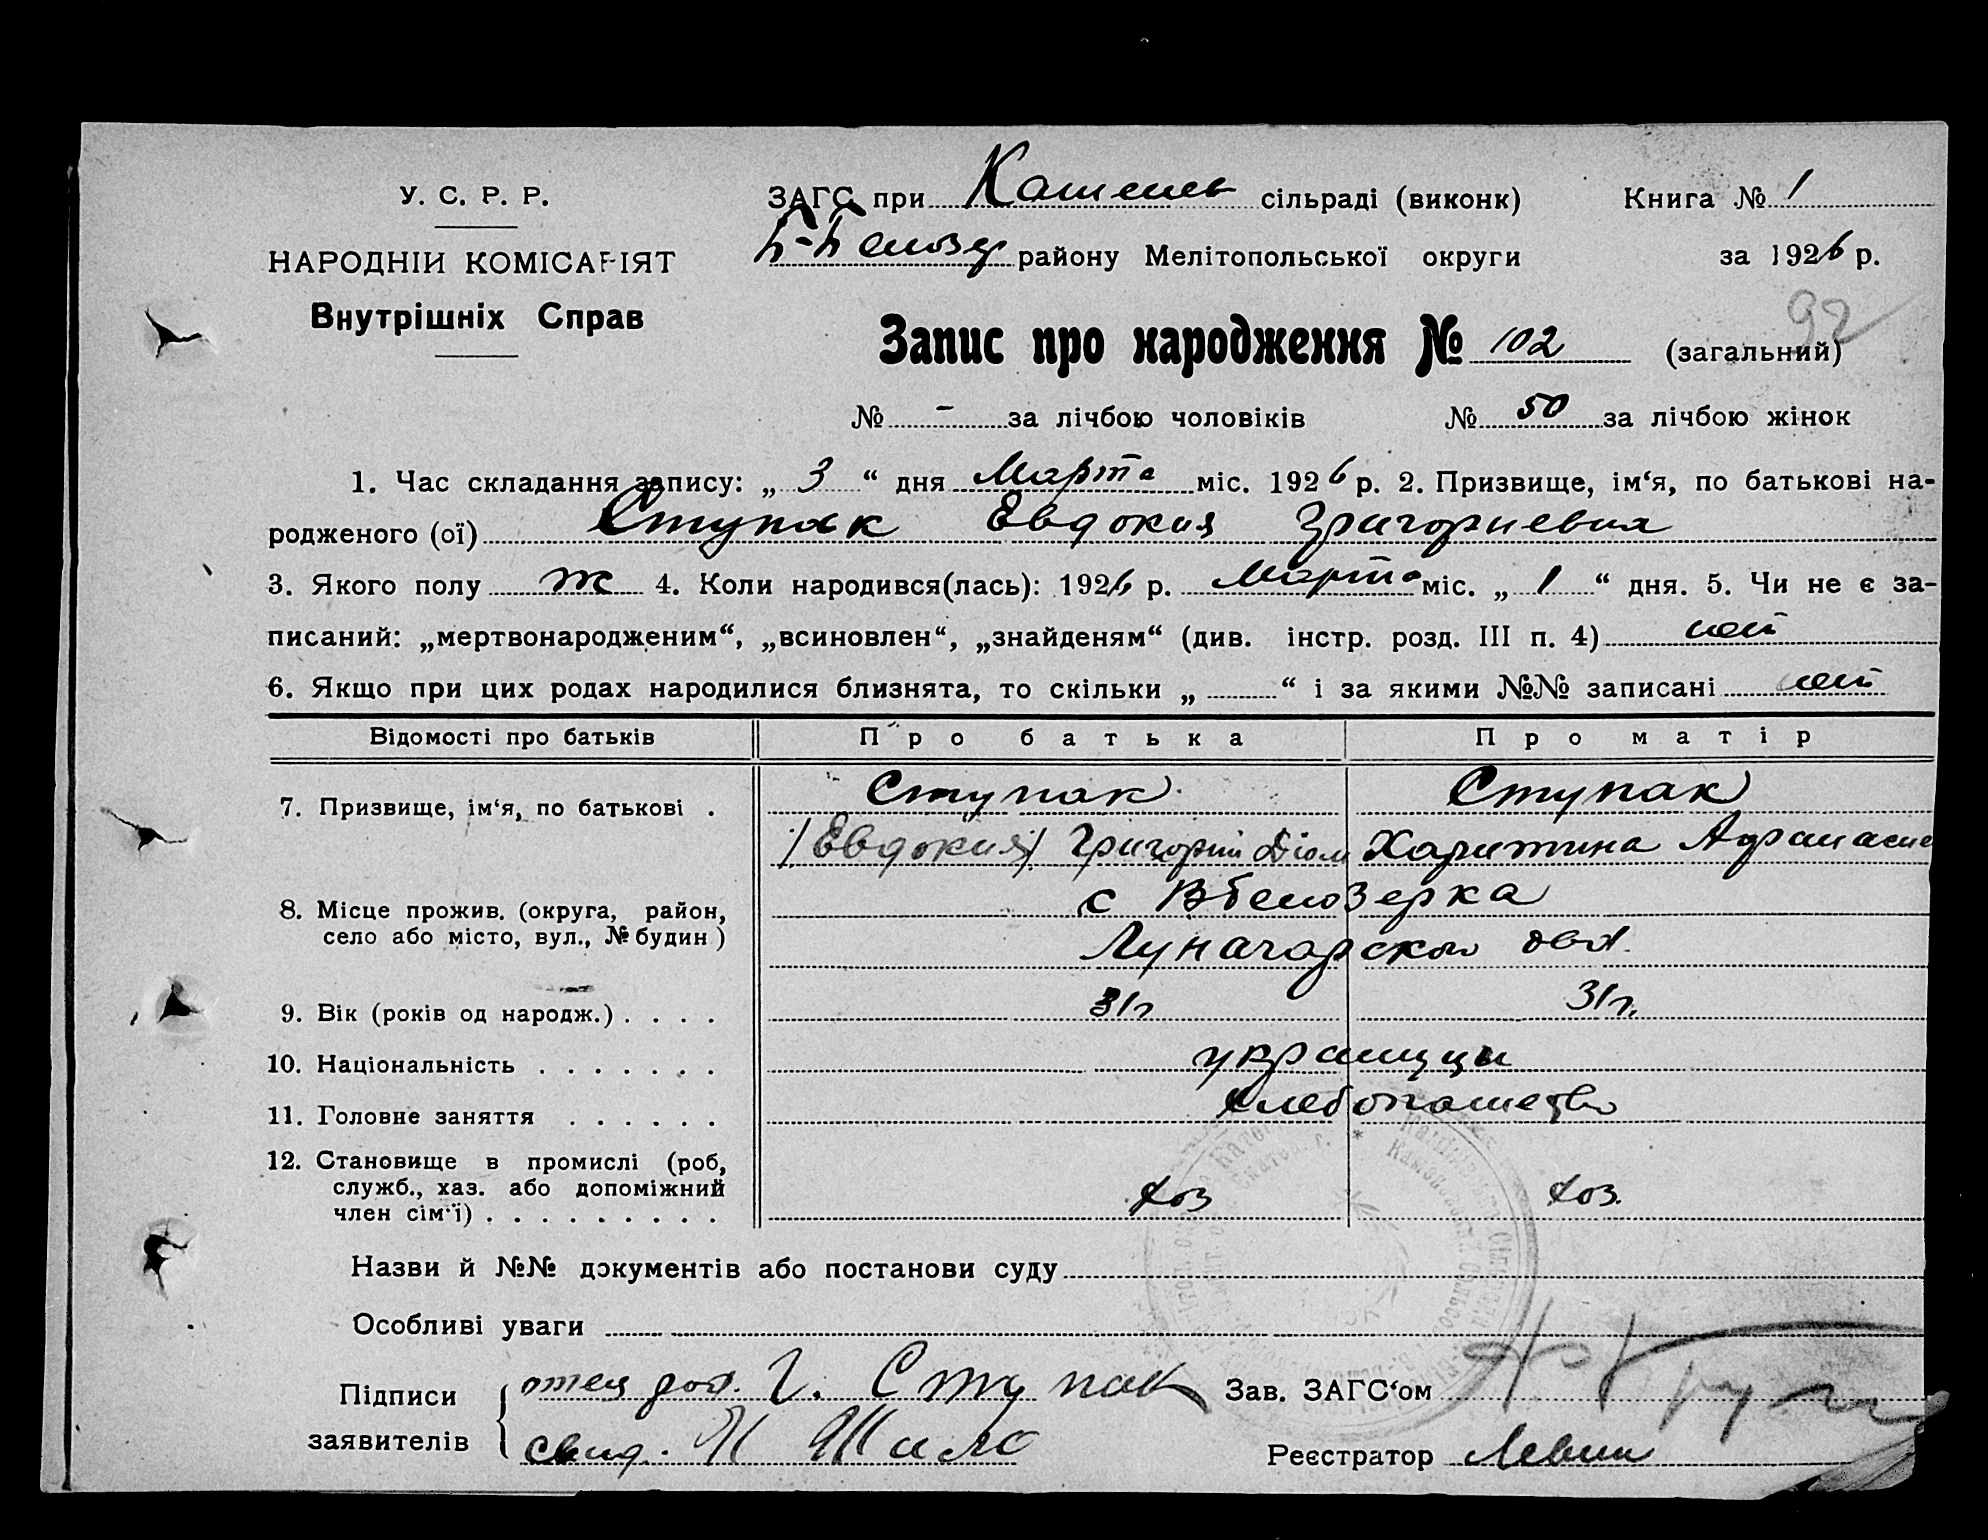 У. С. Р. Р.
НАРОДНІЙ КОМІСАРІЯТ
Внутрішніх Справ
ЗАГС при сільраді (виконк) Книга № 1
району Мелітопольської округи за 1926 р.
92
Запис про народження № 102 (загальний)
№ - за лічбою чоловіків № 50 за лічбою жінок
1. Час складання запису: „ 3 “ дня Марта міс. 1926 р. 2. Призвище, ім‘я, по батькові на-
родженого (ої) Ступак Евдокия Григориевна
3. Якого полу ж 4. Коли народився(лась): 1926 р. Марта міс. „ 1 “ дня. 5. Чи не є за-
писаний: „мертвонародженим“, „всиновлен“, „знайденям“ (див. інстр. розд. III п. 4) нет
6. Якщо при цих родах народилися близнята, то скільки „ “ і за якими №№ записані нет
Відомості про батьків Про батька Про матір
7. Призвище, ім‘я, по батькові . Ступак Ступак
/Евдокия/ Григорий Харитина
8. Місце прожив. (округа, район, с Вбелозерка
село або місто, вул., № будин) Луначарского
9. Вік (років од народж.) . . . . 31г 31г.
10. Національність . . . . . . . украинцы
11. Головне заняття . . . . . . хлебопашество
12. Становище в промислі (роб,
служб., хаз. або допоміжний хоз хоз.
член сім‘ї) . . . . . . . . .
Назви й №№ документів або постанови суду
Особливі уваги
Підписи отец Г. Ступак Зав. ЗАГС‘ом
заявителів свид. И Шило Реєстратор Левин